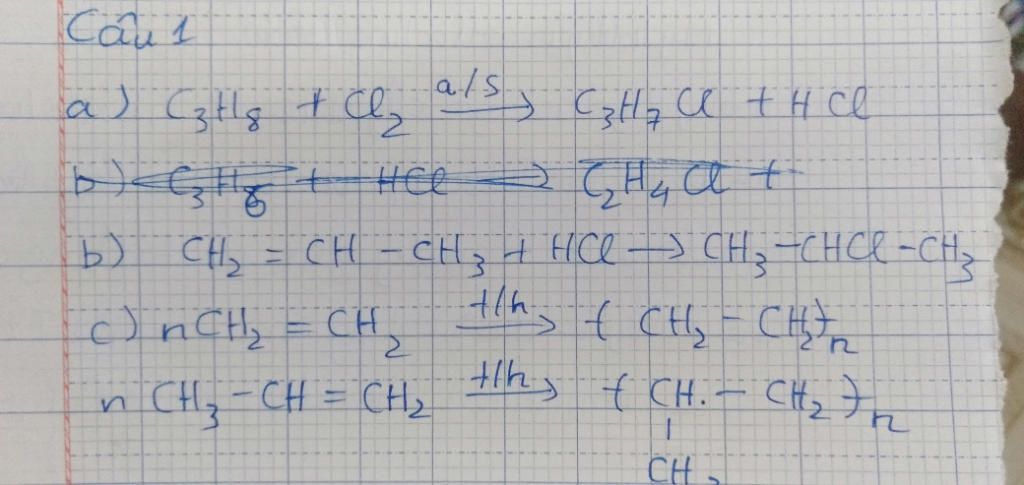 Câu 1
a) C₃H₈ + Cl₂ a/s → C₃H₇Cl + HCl
b) C₃H₆ + HCl → C₂H₄Cl +
b) CH₂ = CH - CH₃ + HCl → CH₃-CHCl-CH₃
c) nCH₂ = CH₂ t/h → ( CH₂ - CH₂ )n
n CH₃-CH = CH₂ t/h → ( CH - CH₂ )n
CH